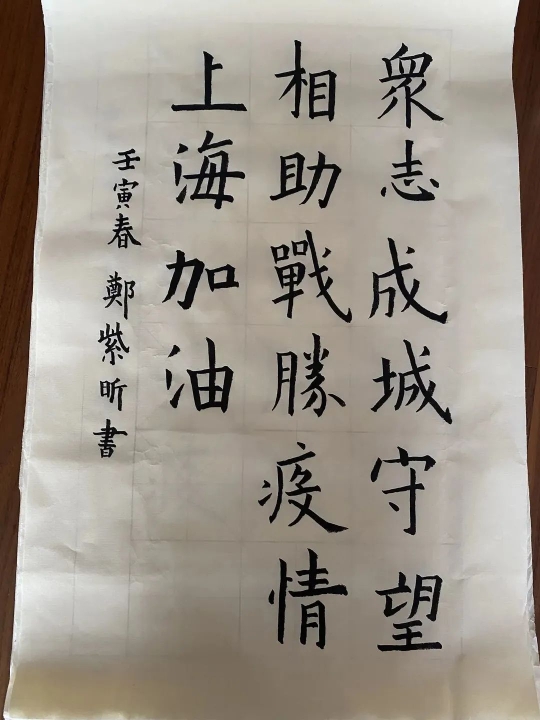 衆志成城守望
相助戰勝疫情
上海加油
壬寅春 鄭紫昕書